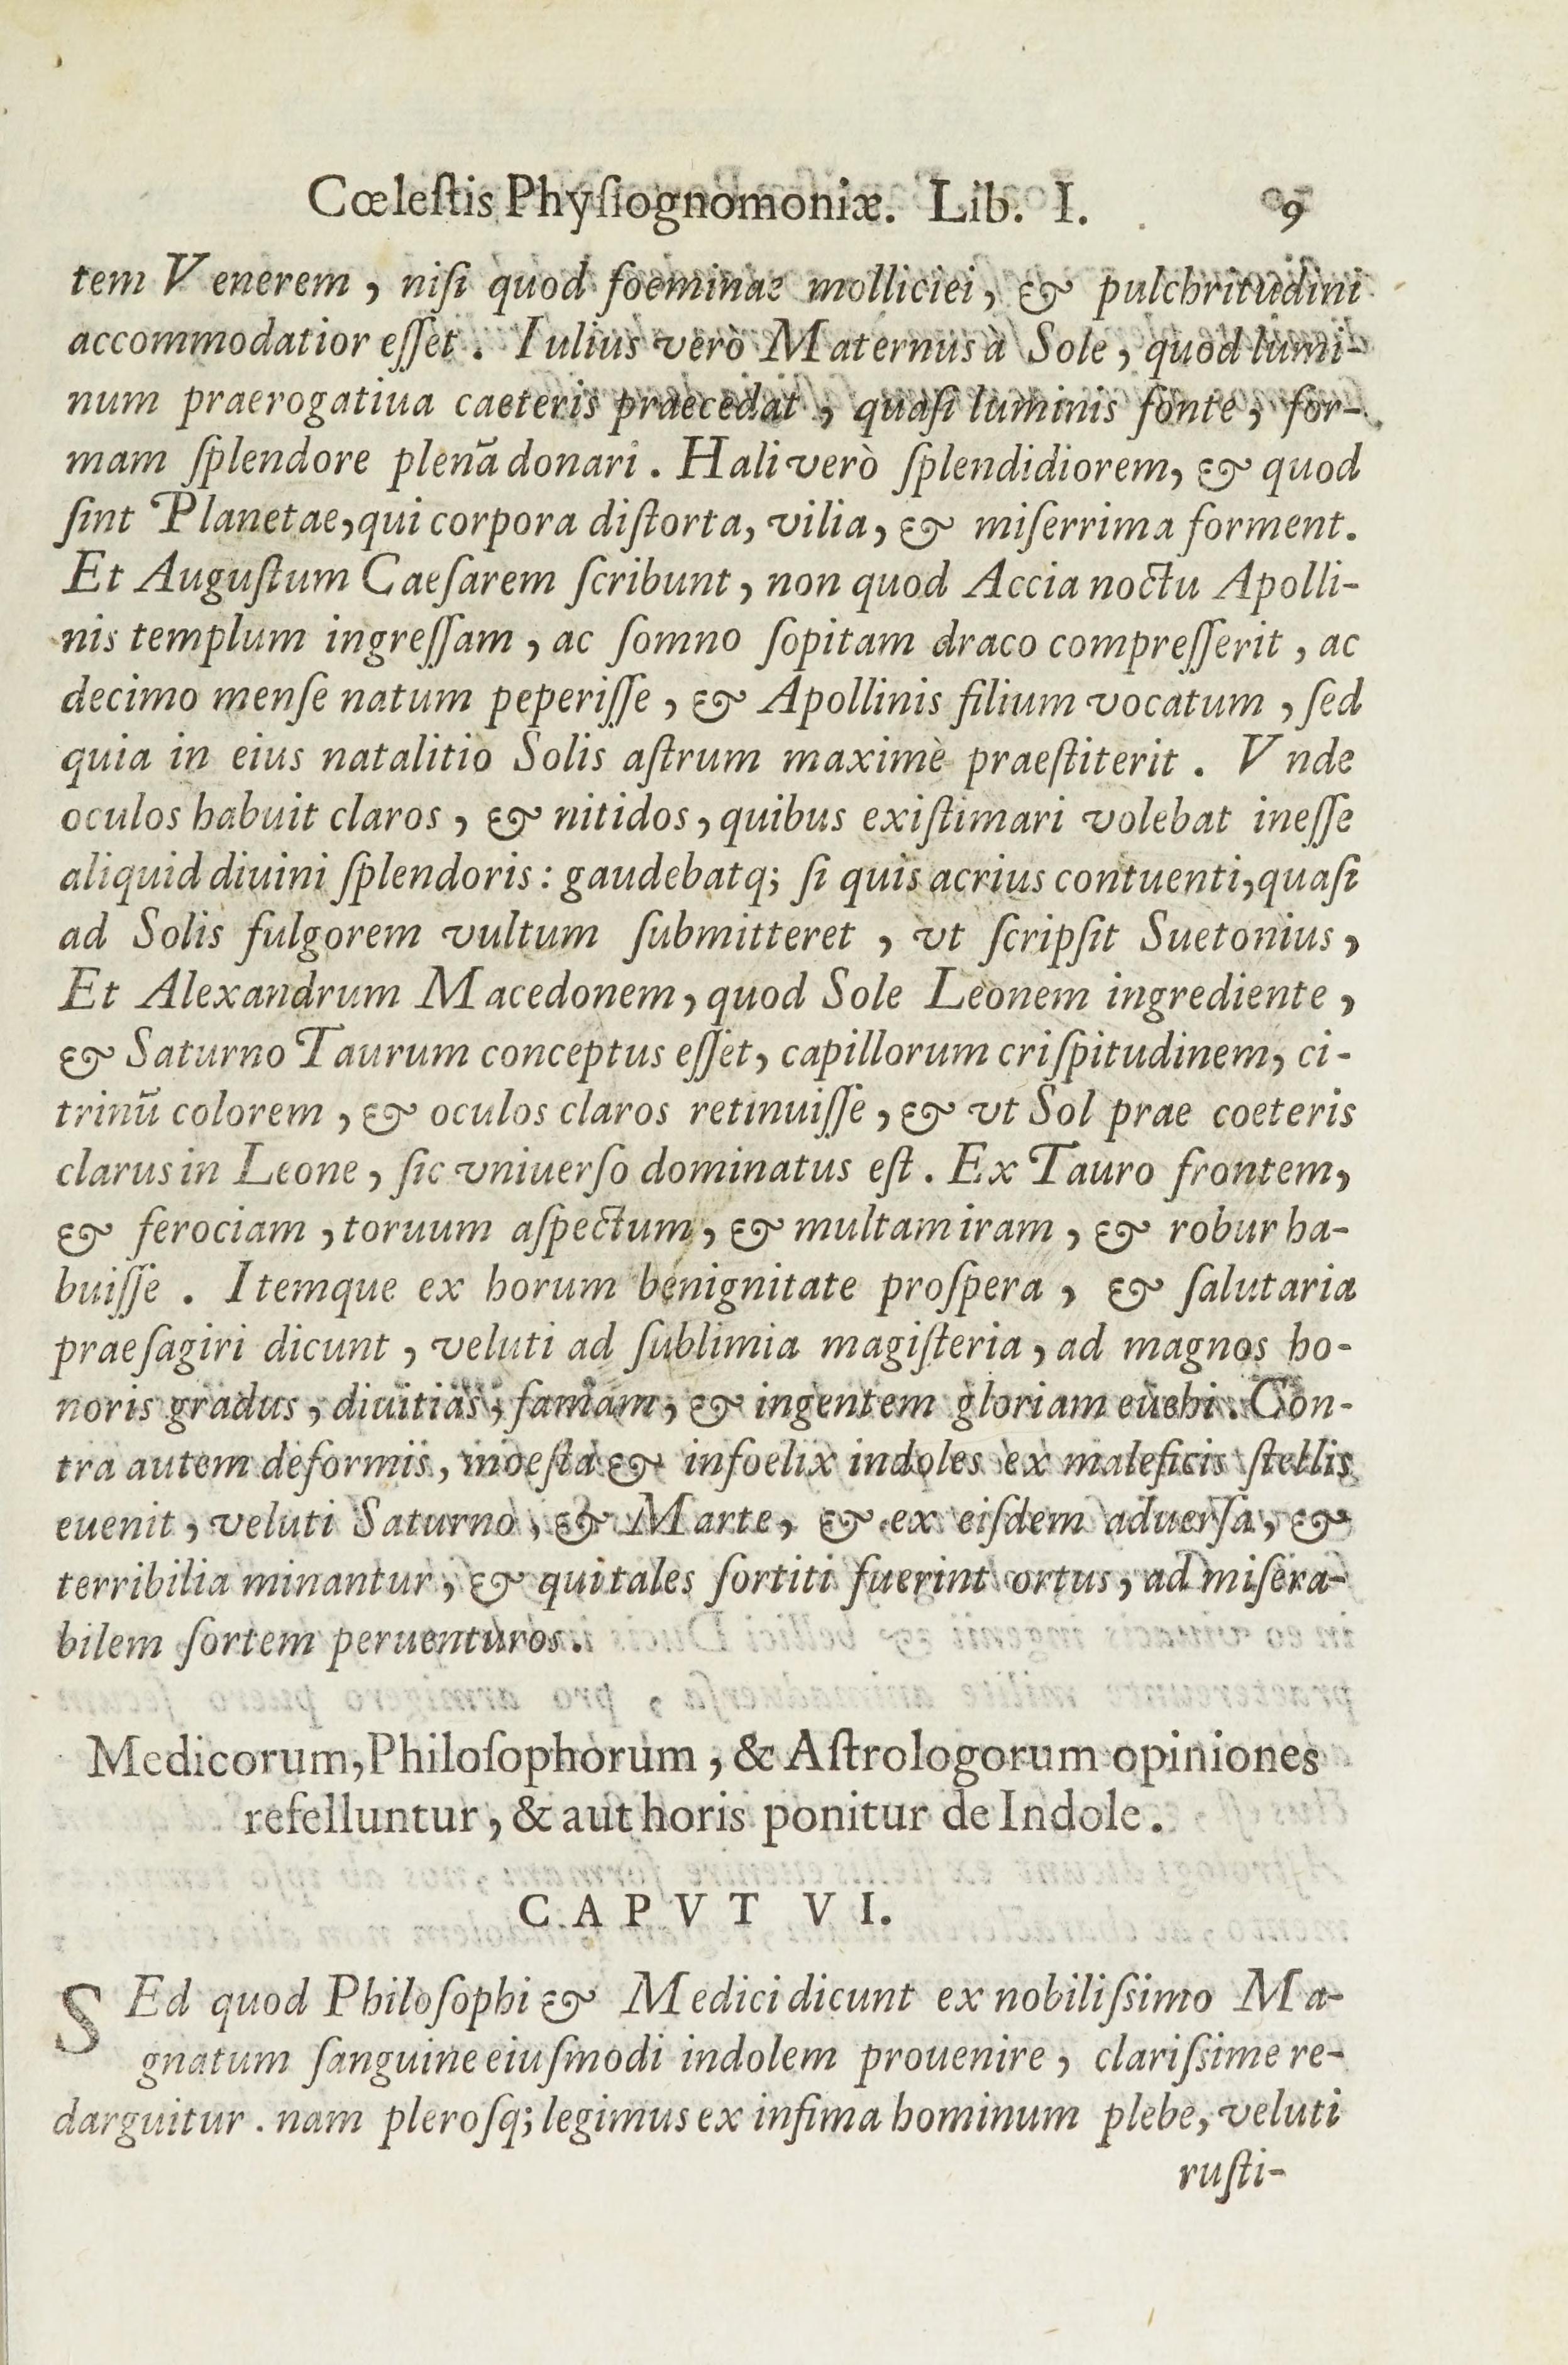 Cœleſtis Phyſiognomoniæ. Lib. I. 9
tem Venerem, niſi quod foeminae molliciei, & pulchritudini
accommodatior eſſet. Iulius verò Maternus à Sole, quod lumi-
num praerogatiua caeteris praecedat, quaſi luminis fonte, for-
mam ſplendore plenā donari. Hali verò ſplendidiorem, & quod
ſint Planetae, qui corpora diſtorta, vilia, & miſerrima forment.
Et Auguſtum Caeſarem ſcribunt, non quod Accia noctu Apolli-
nis templum ingreſſam, ac ſomno ſopitam draco compreſſerit, ac
decimo menſe natum peperiſſe, & Apollinis filium vocatum, ſed
quia in eius natalitio Solis aſtrum maximè praeſtiterit. Vnde
oculos habuit claros, & nitidos, quibus exiſtimari volebat ineſſe
aliquid diuini ſplendoris: gaudebatq; ſi quis acrius contuenti, quaſi
ad Solis fulgorem vultum ſubmitteret, vt ſcripſit Suetonius,
Et Alexandrum Macedonem, quod Sole Leonem ingrediente,
& Saturno Taurum conceptus eſſet, capillorum criſpitudinem, ci-
trinū colorem, & oculos claros retinuiſſe, & vt Sol prae coeteris
clarus in Leone, ſic vniuerſo dominatus eſt. Ex Tauro frontem,
& ferociam, toruum aſpectum, & multam iram, & robur ha-
buiſſe. Itemque ex horum benignitate proſpera, & ſalutaria
praeſagiri dicunt, veluti ad ſublimia magiſteria, ad magnos ho-
noris gradus, diuitias, famam, & ingentem gloriam euehi. Con-
tra autem deformis, moeſta & infoelix indoles ex maleficis ſtellis
euenit, veluti Saturno, & Marte, & ex eiſdem aduerſa, &
terribilia minantur, & qui tales ſortiti fuerint ortus, ad miſera-
bilem ſortem peruenturos.
Medicorum, Philoſophorum, & Aſtrologorum opiniones
refelluntur, & authoris ponitur de Indole.
CAPVT VI.
SEd quod Philoſophi & Medici dicunt ex nobiliſsimo Ma-
gnatum ſanguine eiuſmodi indolem prouenire, clariſsime re-
darguitur. nam pleroſq; legimus ex infima hominum plebe, veluti
ruſti-